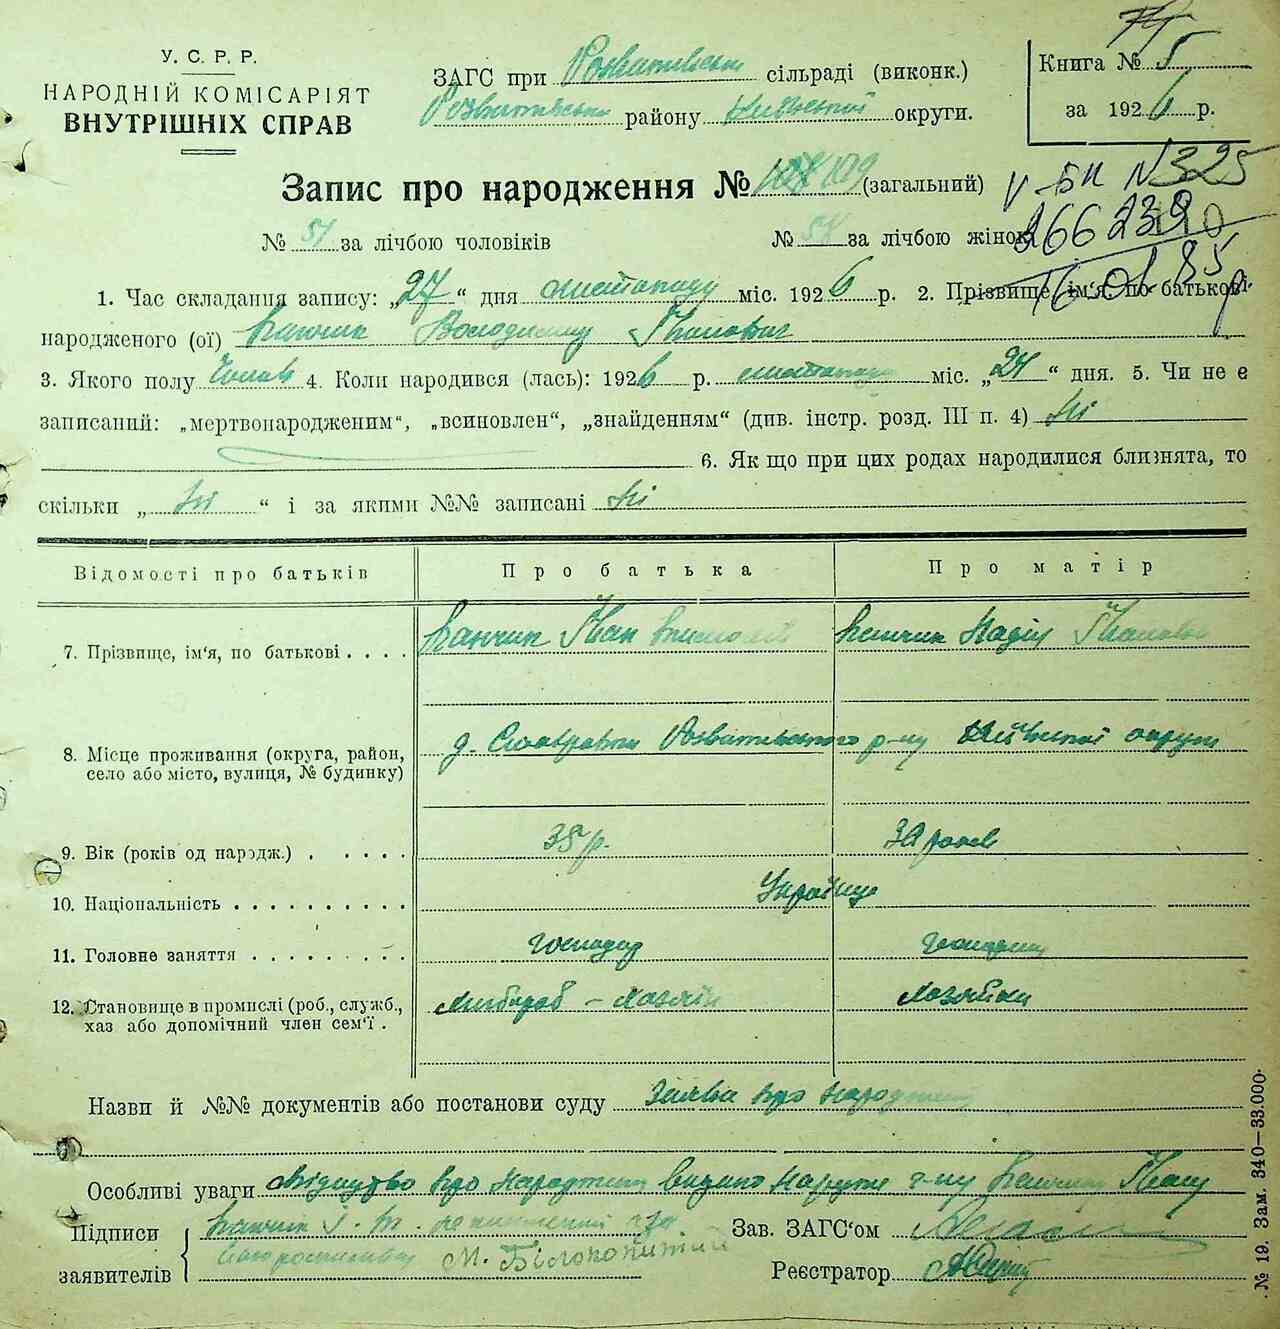 У. С. Р. Р.
НАРОДНІЙ КОМІСАРІЯТ
ВНУТРІШНІХ СПРАВ
ЗАГС при Розважівськ сільраді (виконк.)
Розважівськ району Київської округи.
Книга № 5
за 1926 р.
Запис про народження № 109 (загальний)
V-БК N325
№ 51 за лічбою чоловіків № за лічбою жінок
16.01.85
1. Час складання запису: „27“ дня листопаду міс. 1926 р. 2. Прізвище, ім'я, по батькові
народженого (ої) Володимир Іванович
3. Якого полу Чолов 4. Коли народився (лась): 1926 р. листопада міс. „24“ дня. 5. Чи не є
записаний: „мертвонародженим“, „всиновлен“, „знайденням“ (див. інстр. розд. III п. 4) Ні
6. Як що при цих родах народилися близнята, то
скільки „Ні“ і за якими №№ записані Ні
Відомості про батьків Про батька Про матір
7. Прізвище, ім'я, по батькові . . . . Іван Надія Іванов
8. Місце проживання (округа, район, село або місто, вулиця, № будинку) Розважівського р-ну Київської округи
9. Вік (років од народж.) . . . . . 35 р. років
10. Національність . . . . . . . . . . Українці
11. Головне заняття . . . . . . . . . Господар
12. Становище в промислі (роб., служб., хаз або допомічний член сем'ї . Хлібороб – Хазяїн Хазяйка
Назви й №№ документів або постанови суду Заява про народження
Особливі уваги Свідоцтво про народжен видано на руки г-ну Івану
Підписи
заявителів
М. Білокопитий
Зав. ЗАГС'ом
Реєстратор
№ 19. Зам. 340—33.000.